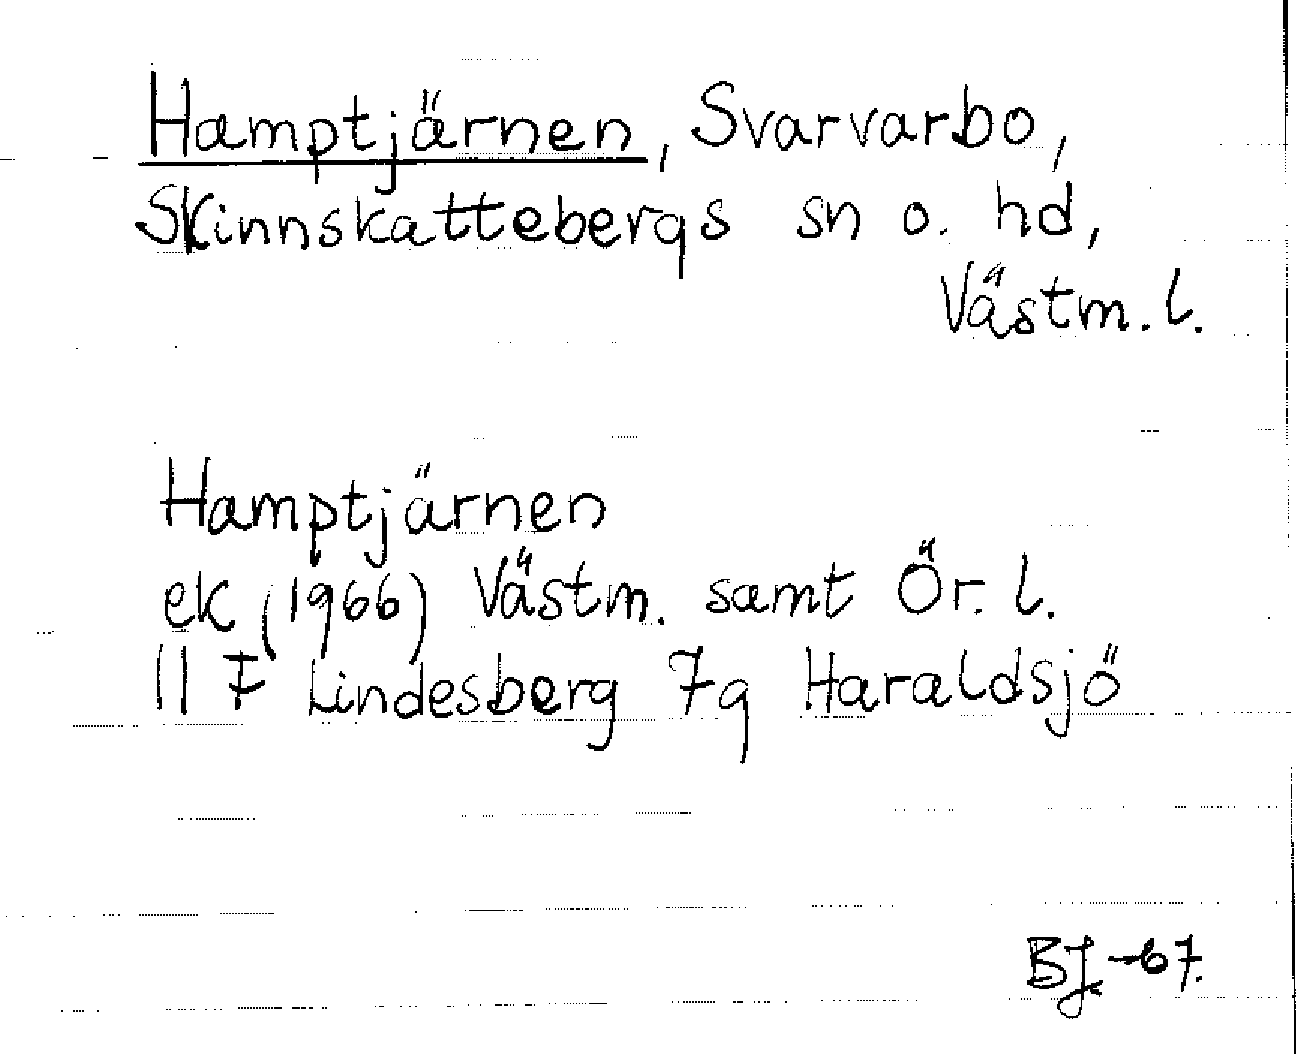 Hamptjärnen, Svarvarbo,
Skinnskattebergs sn o. hd,
Västm. l.
Hamptjärnen
ek (1966) Västm. samt Ör. l.
11 F Lindesberg 7g Haraldsjö
BJ -67.